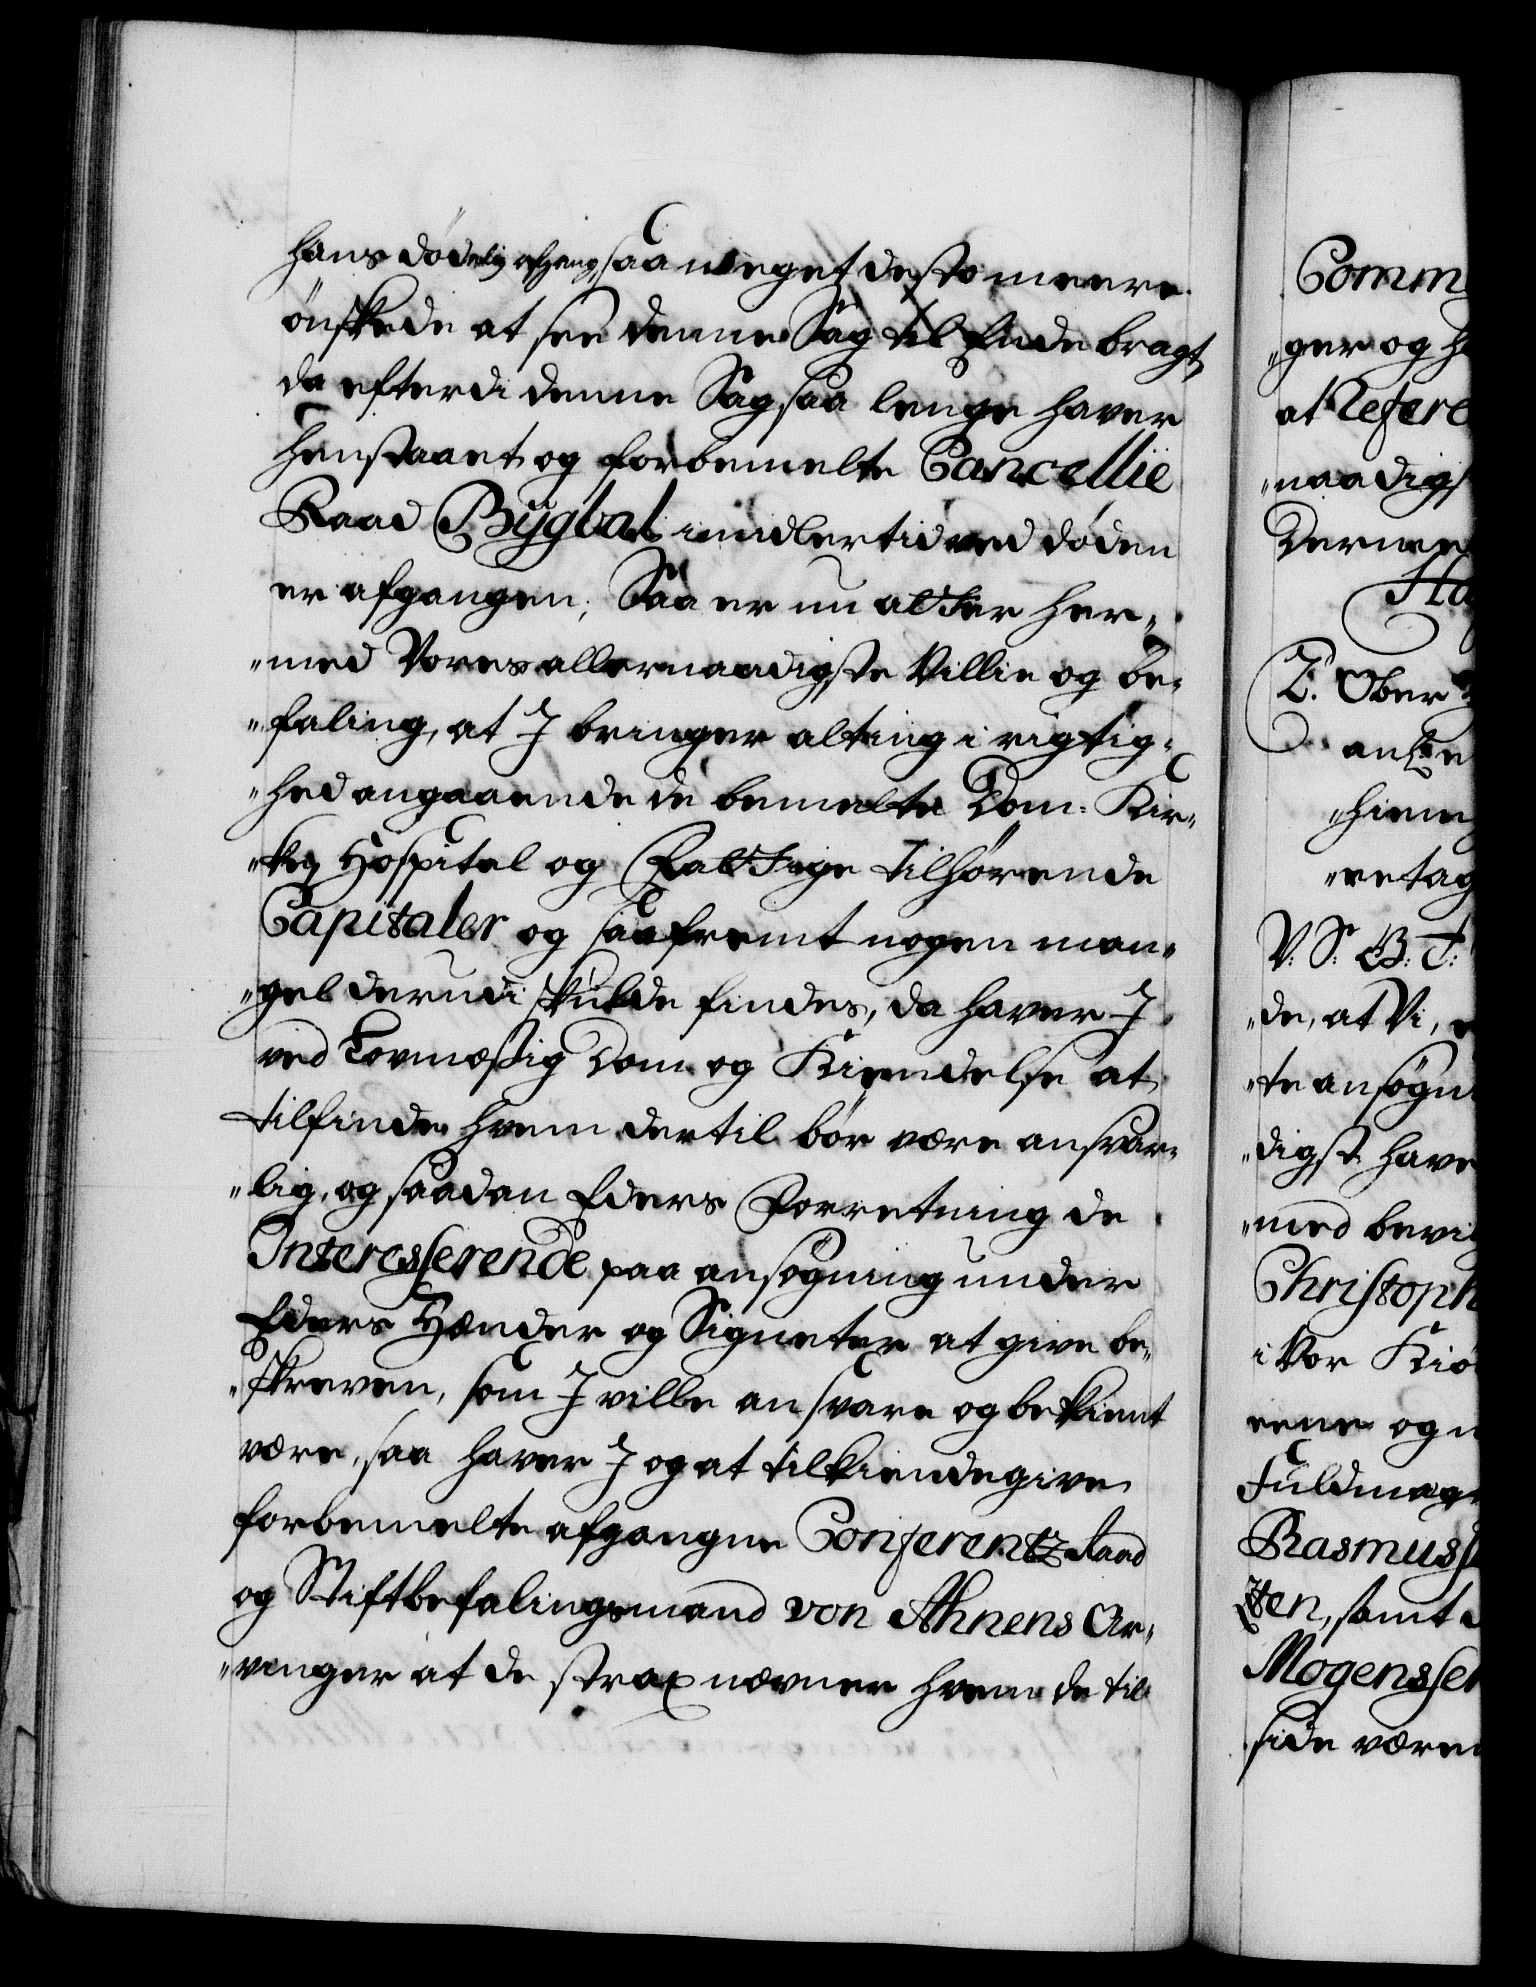 hans dødelig afgang, saa meget desto meere
ønskede at see denne Sag til Ende bragt,
da efterdi denne Sag saa lenge haver
henstaaet og forbemelte Cancellie
Raad Bÿgbal imidlertid ved døden
er afgangen; Saa er nu atter her„
„med Vores allernaadigste Villie og be„
„faling, at J bringer alting i rigtig„
„hed angaaende de bemelte Dom-Kir„
„kes Hospital og Fattige tilhørende
Capitaler og saafremt nogen man„
„gel derudi skulde findes, da haver J
ved Lovmæssig Dom og Kiendelse at
tilfinde hvem dertil bør være ansvar„
„lig, og saadan Eders Forretning de
Interesserende paa ansøgning under
Eders Hænder og Signeter at give be„
„skreven, som J ville ansvare og bekient
være, saa haver J og at tilkiendegive
forbemelte afgangne Conferentz Raad
og Stiftbefalingsmand von Ahnens Ar„
„vinger at de strax nævner hvem de til
Comm
„ger og h
at Refere
„naadigs
Dermed
Ha
T. Ober
„hiem
„retag
V: S: G: T:
„de, at Vi,
„te ansøgn
„digst have
„med bevil
Christoph
i Vor Kiø
eene og
Fuldmæg
Rasmuss
ten, samt
Mogensse
side være